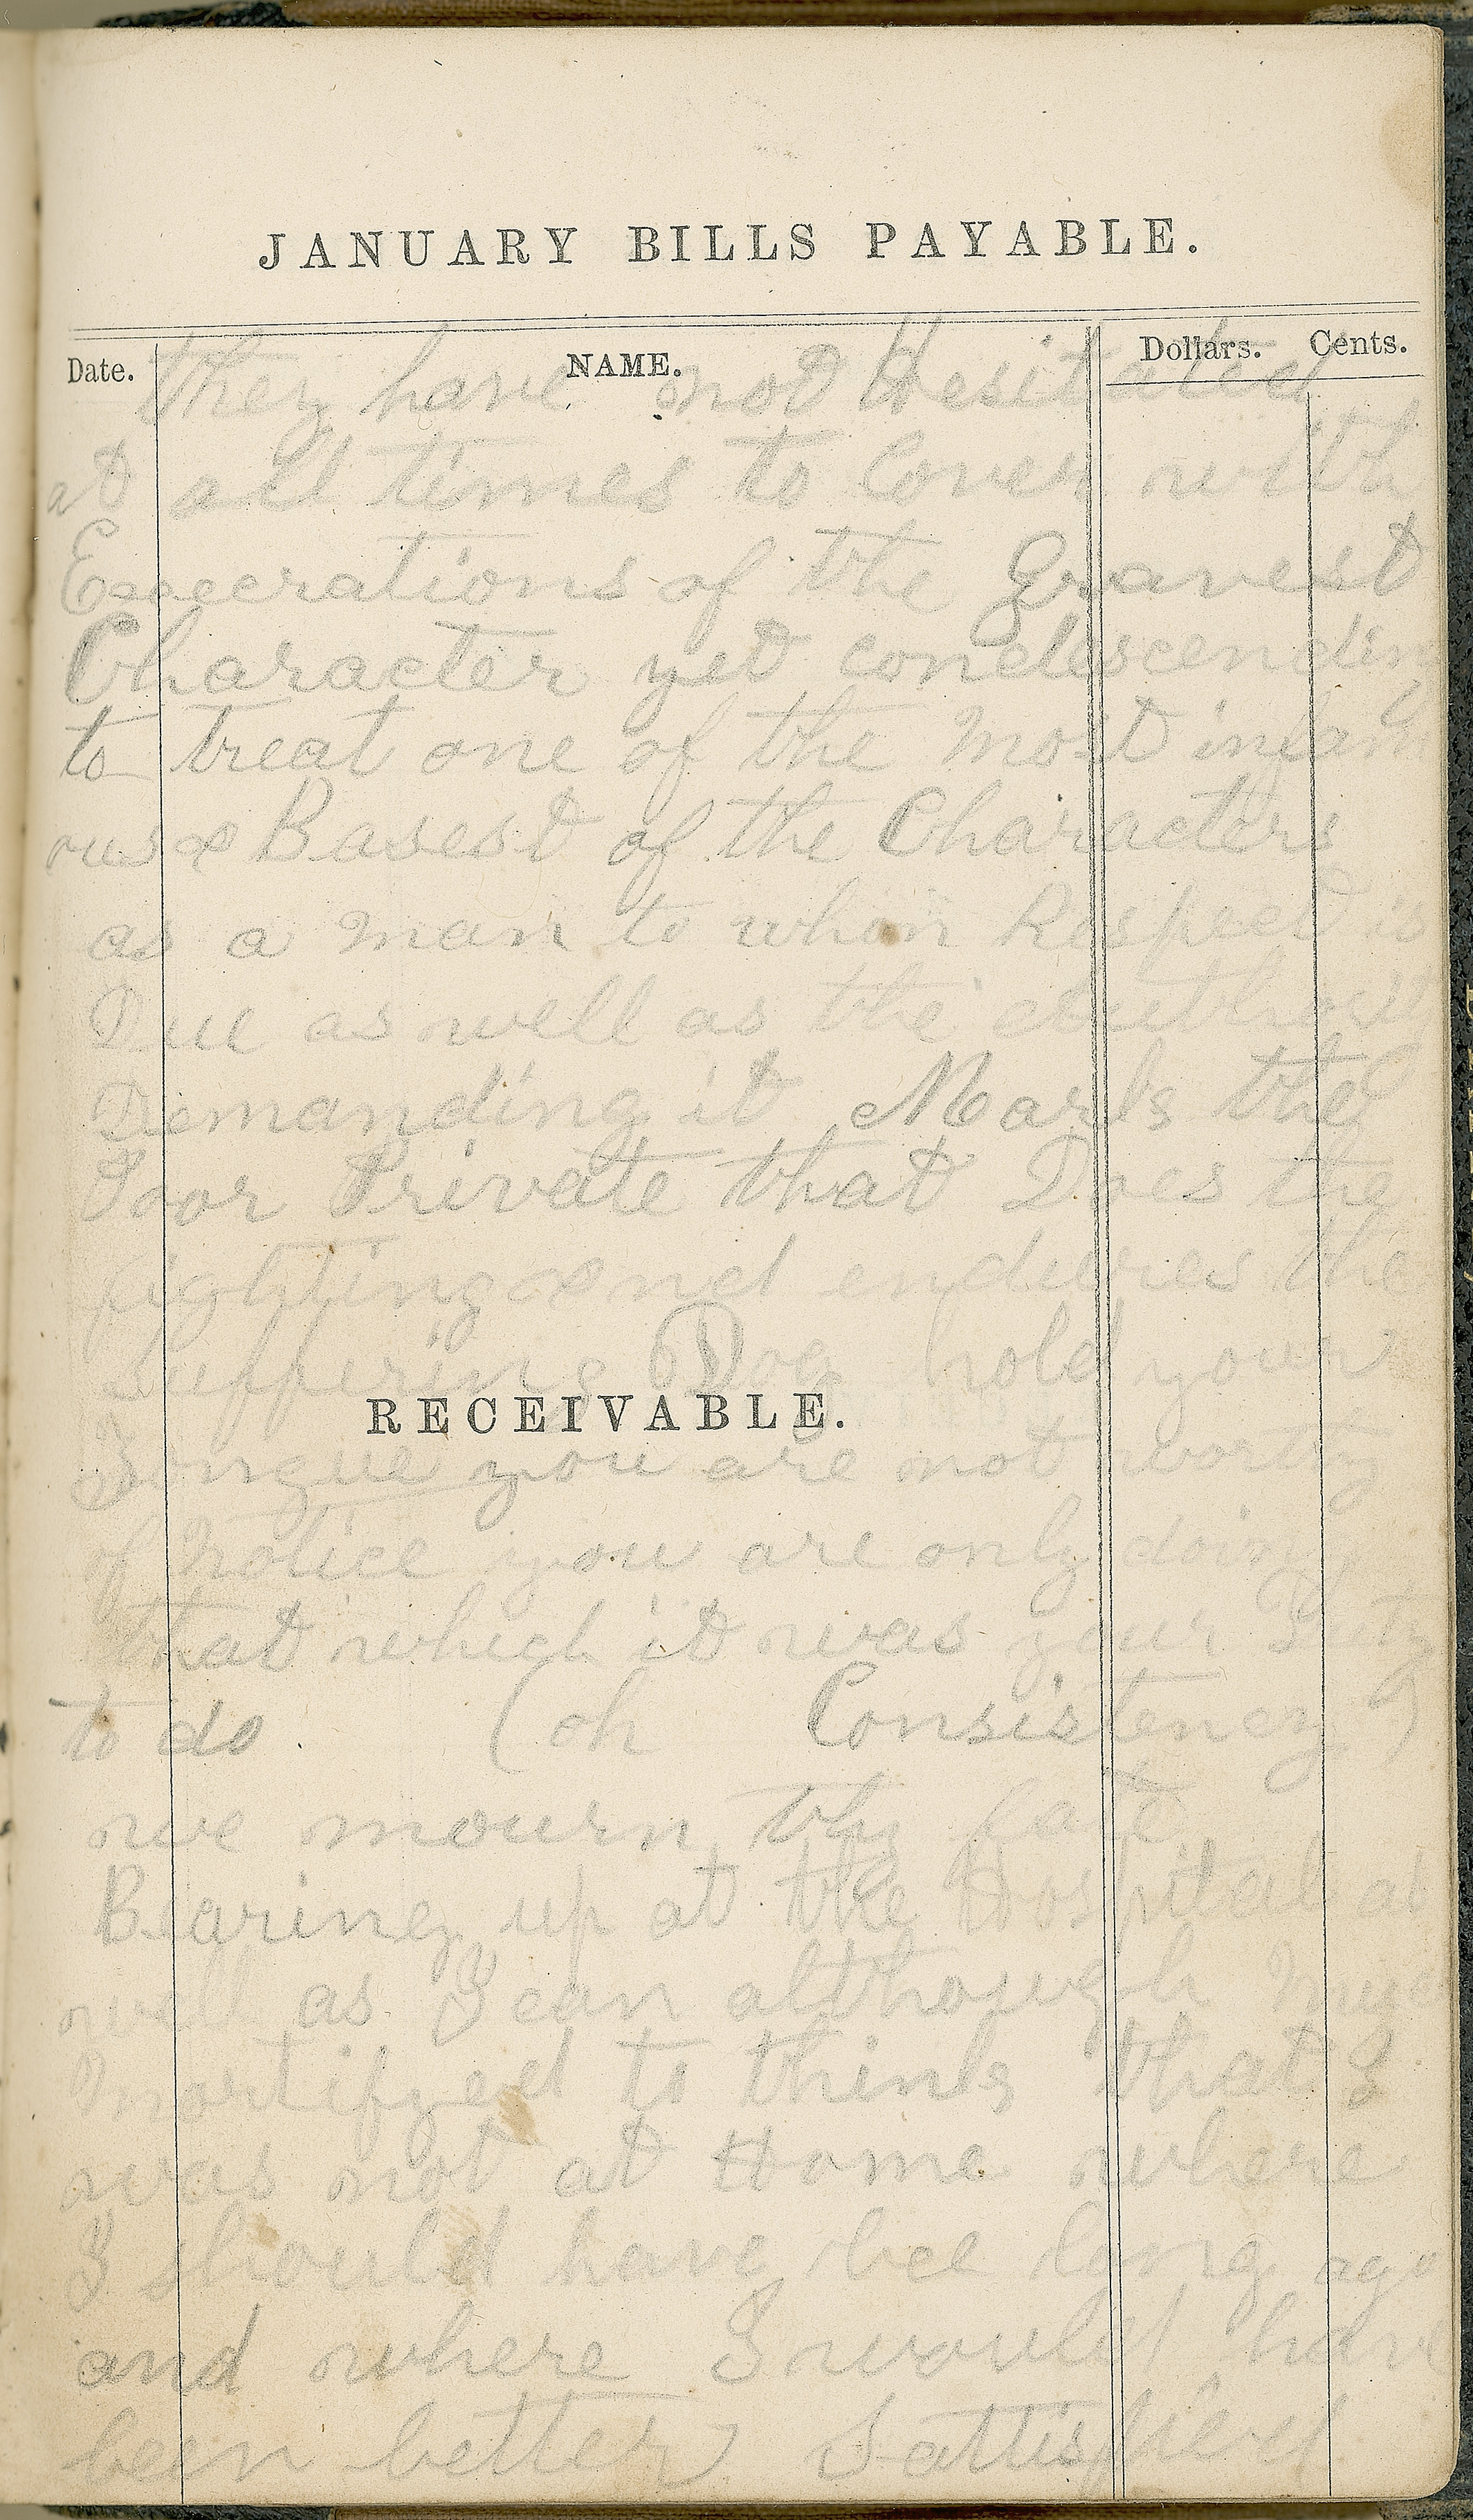 JANUARY BILLS PAYABLE.
Date. NAME. Dollars. Cents.
they have not Hesitated
at all times to Cover with
Execrations of the Gravest
Character yet condescending
to treat one of the Most infam
ous & Basest of the Characters
as a man to whom Respect is
Due as well as the
Demanding it Marks the
Poor Private that Does the
fighting and endures the
Suffering Dog hold your
Tongue you are not worthy
RECEIVABLE.
of Notice you are only doing
that which it was your Duty
to do (oh Consistency)
we mourn thy fate
Bearing up at the Hospital as
well as I can although Much
Mortifyed to think that I
was not at Home where
I should have bee long ago
and where I would have
been better Sattisfied